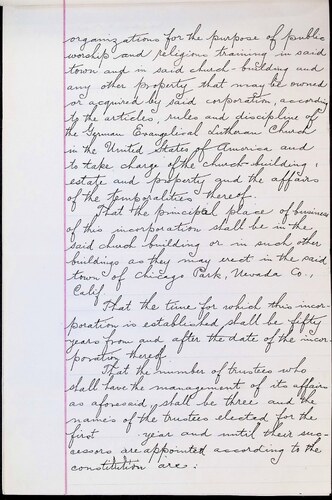 organizations for the purpose of public
worship and religious training in said
town and in said church-building and
any other property that may be owned
or acquired by said corporation, according
to the articles, rules and discipline of
the German Evangelical Lutheran Church
in the United States of America and
to take charge of the church-building,
estate and property and the affairs
of the temporalities thereof.
That the principal place of business
of this incorporation shall be in the
said church building or in such other
buildings as they may erect in the said
town of Chicago Park, Nevada Co.,
Calif.
That the time for which this incor-
poration is established shall be fifty
years from and after the date of the incor-
poration thereof.
That the number of trustees who
shall have the management of its affairs
as aforesaid, shall be three and the
names of the trustees elected for the
first year and until their suc-
cessors are appointed according to the
constitution are: